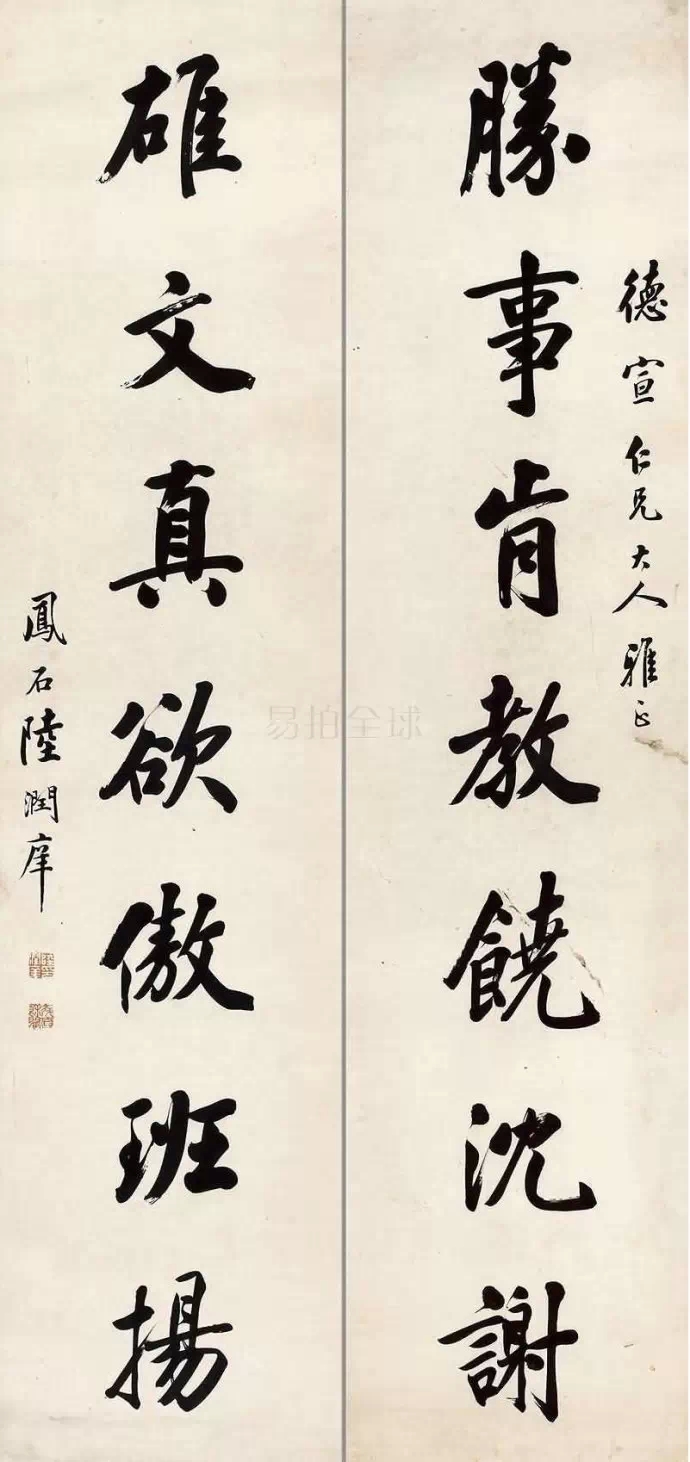 德宣仁兄大人雅正
勝事肯教饒沈謝
雄文真欲傲班揚
鳳石陸潤庠
易拍全球